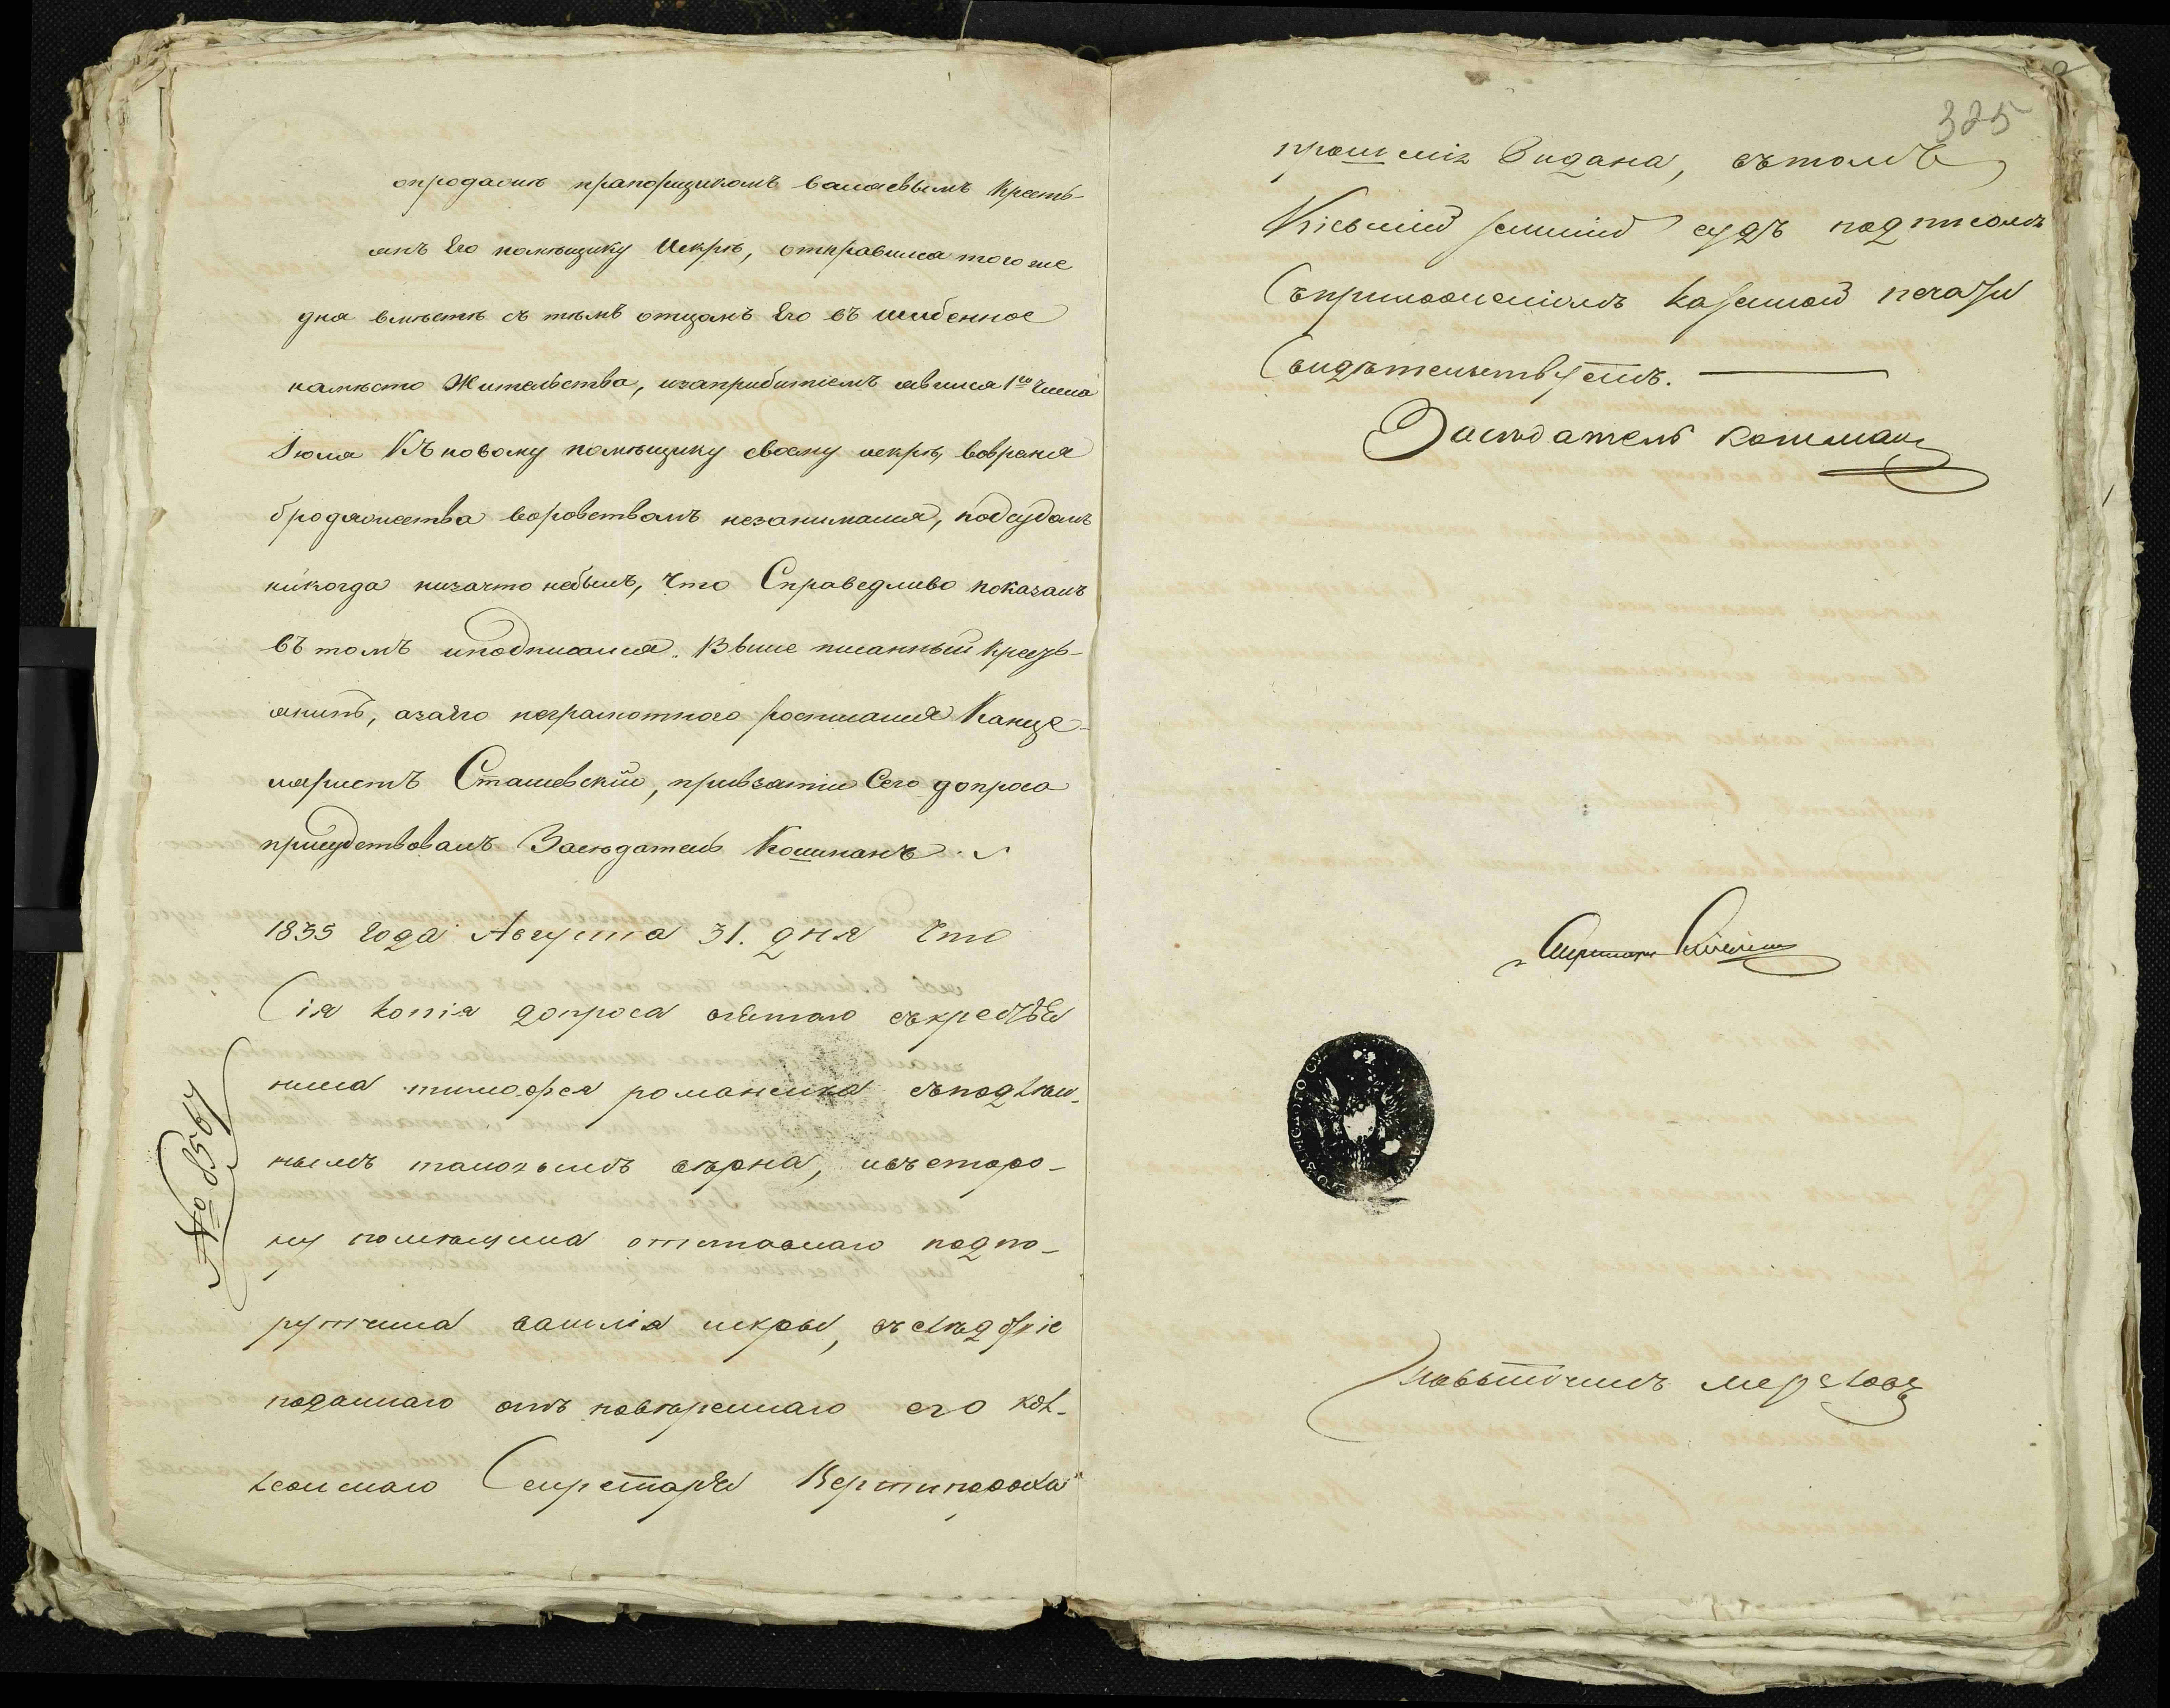 опродажѣ прапорщикомъ Валаевымъ Кресть-
янъ Его помѣщику Искрѣ, отправился того же
дня вмѣстѣ съ тѣмъ отцомъ Его въ
намѣсто Жительства, изаприбытіемъ явился 1го Числа
Іюля Къ новому помѣщику своему искрѣ, вовремя
бродяжества воровствомъ незанимался, подсудомъ
никогда низачто небылъ, Что Справедливо показалъ
въ томъ иподписался. Выше писанный Кресть-
янинъ, азаего неграмотного росписался Канце-
ляристъ Сташевскій, привзятіи Сего допроса
присудствовалъ Засѣдатель Кошманъ.
1835 года Августа 31. дня Что
Сія копія допроса снятаго съкресть
нина тимофея романенка съподлин-
нымъ таковымъ вѣрна, ивъсторо-
ну помѣщика отставнаго подпо-
рутчика василія искры, въслѣдствіе
поданнаго отъ повѣреннаго его кол-
лежскаго Секретаря Вертипороха
№ 8567
325
прошенія выдана, вътомъ
Кіевскій земскій судъ подписомъ
Съприложеніемъ казенной печати
Свидѣтельствуетъ.
Засѣдатель Кошманъ
Секретарь
Повытчикъ